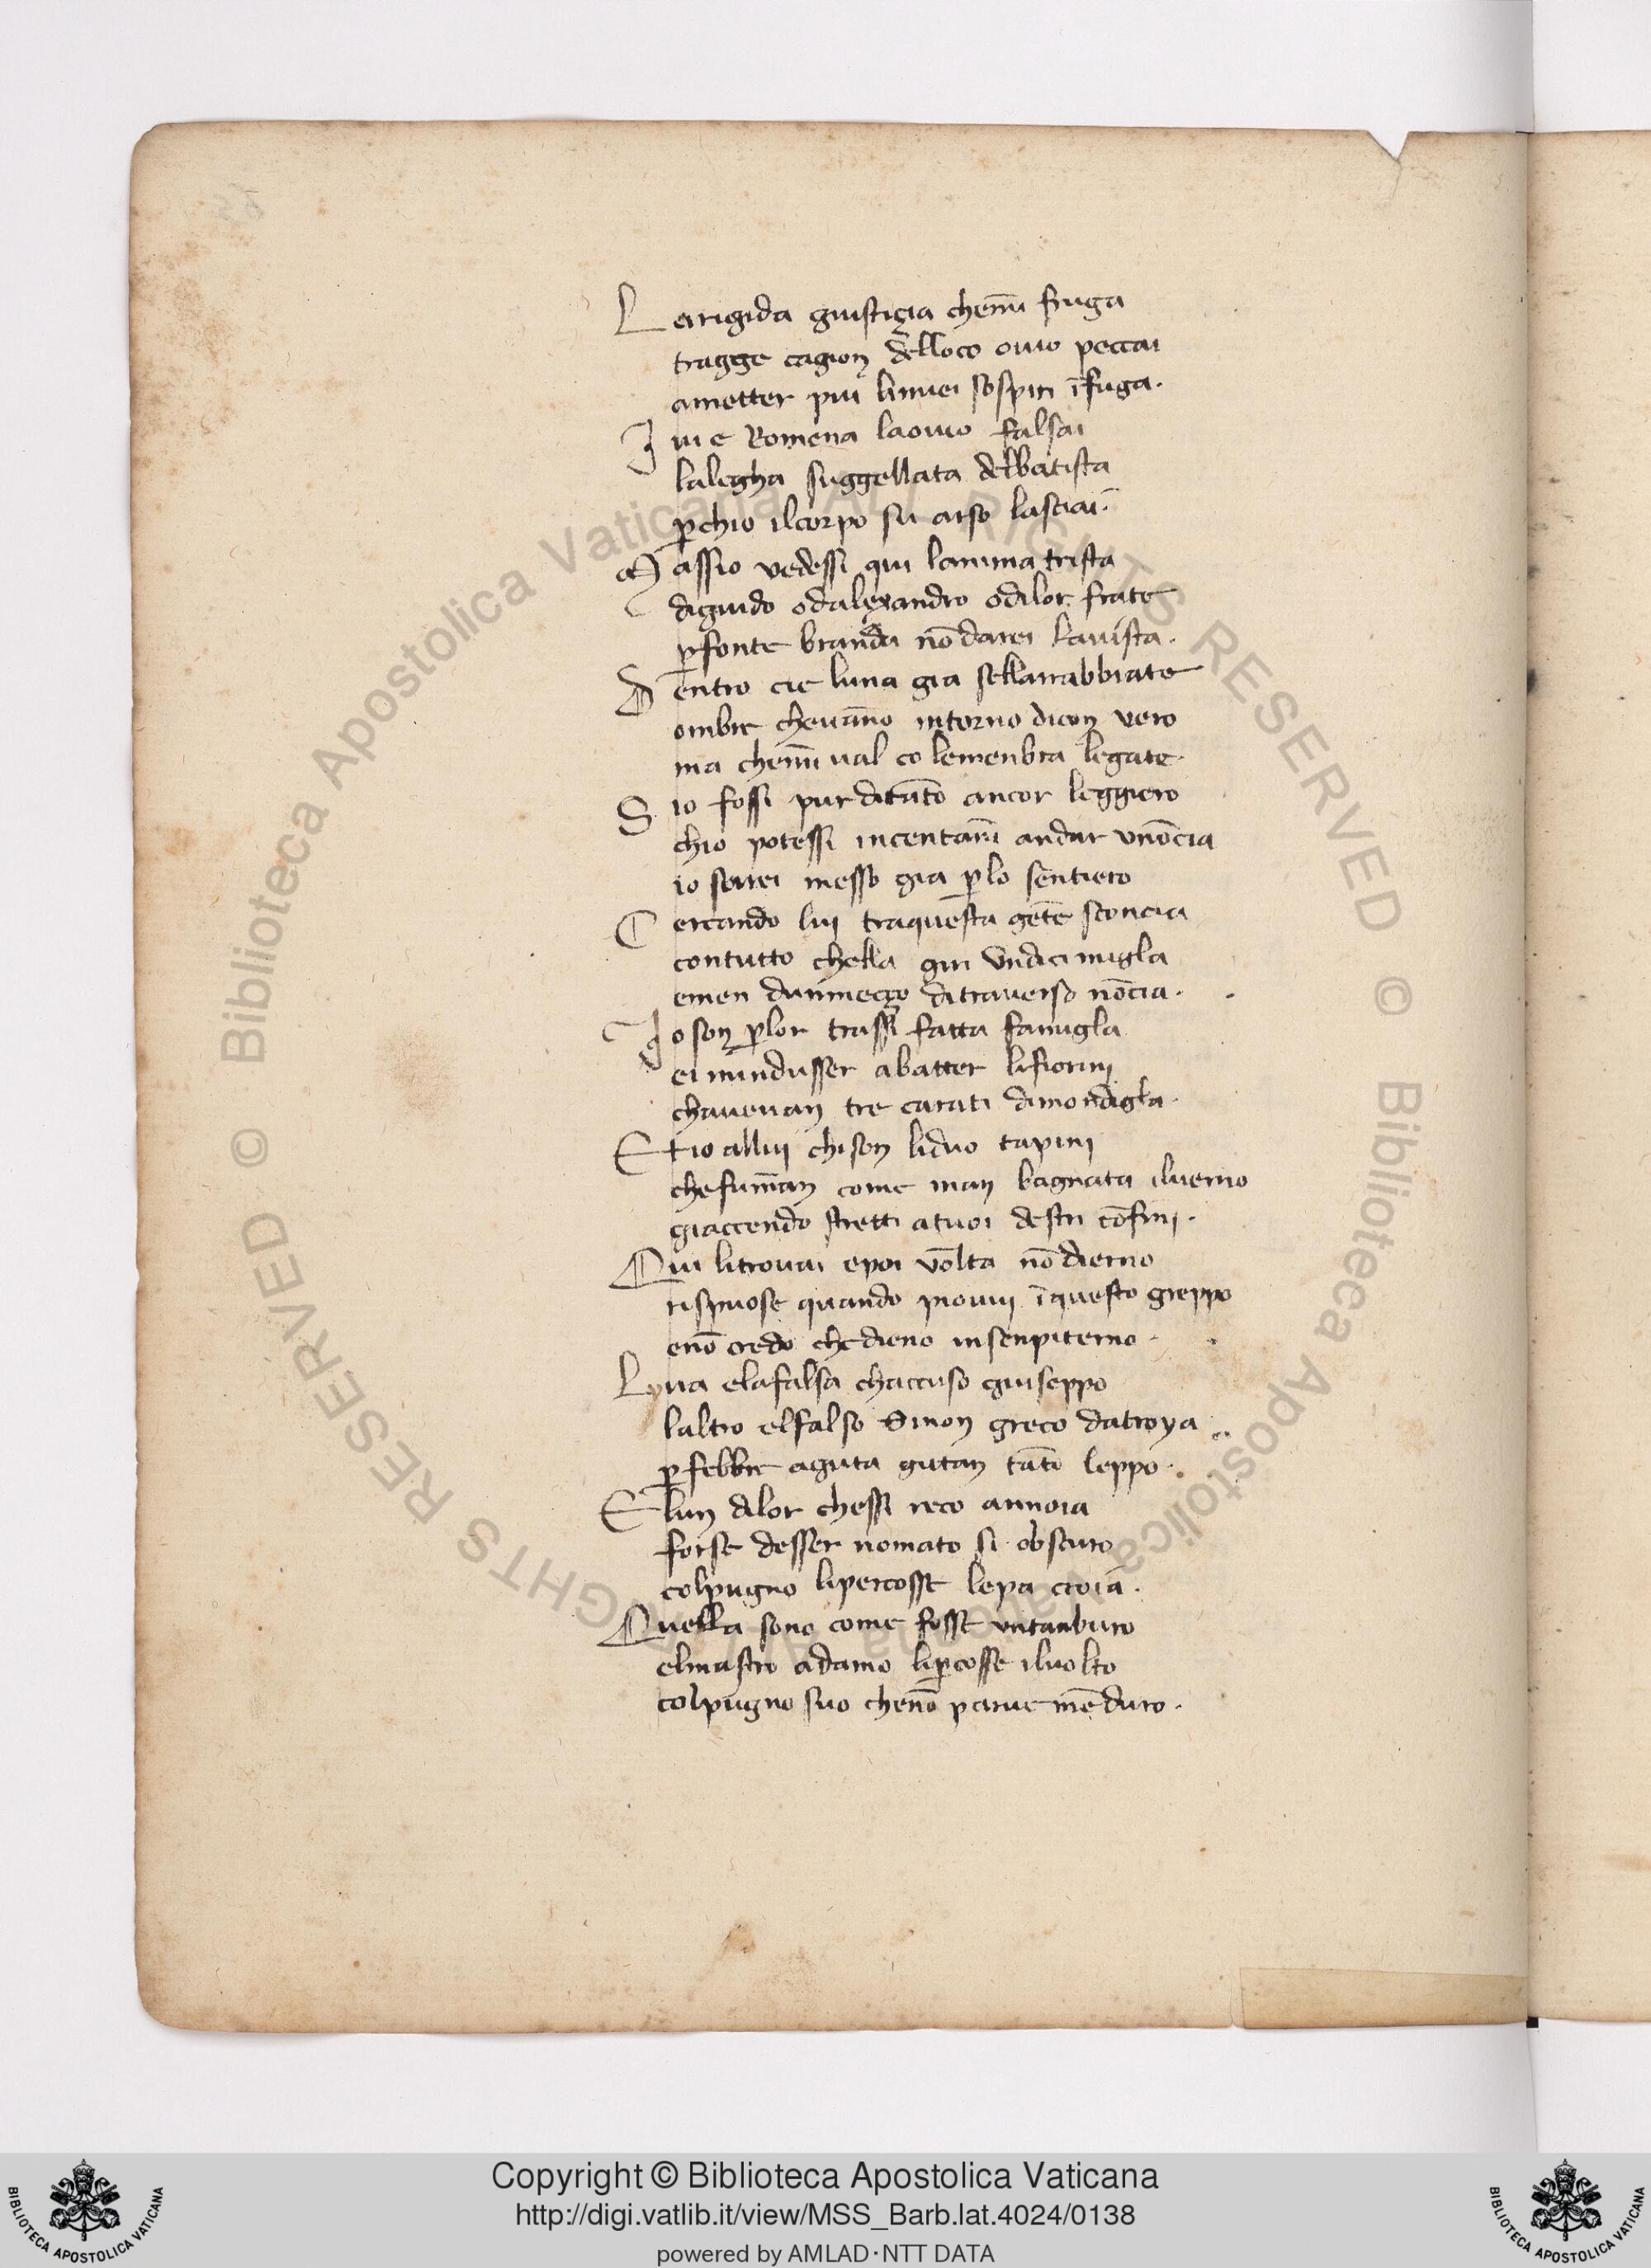 La rigida giustiçia chemī fruga
tragge cagion delloco ouio peccai
ametter piu limiei sospiri ī fuga.
Iui e Romena laouio falsai
lalegha suggellata delbatista
ꝑchio ilcorpo su arso lasciai.
Massio vedessi qui lanima trista
diguido o dalexandro o dilor frate
ꝑ fonte branda nō darei lauista.
Dentro cie luna gia sellarrabbiate
ombre cheuāno intorno dicon vero
ma chemī ual co lemenbra legate.
Sio fossi pur ditāto ancor leggiero
chio potessi incentanī andar vnōcia
io serrei messo gia ꝑ lo sentiero
Cercando lui traquesta gēte sconcia
contutto chella giri vndici migla
emen dunmeçço ditrauerso nōcia.
Io son ꝑ lor trassi fatta famigla
ei mīndusser abatter lifiorini
chaueuan tre carati dimondigla.
Et io allui chi son liduo tapini
chefūman come man bagnata iluerno
giaccendo stretti atuoi destri cōfini.
Qui litrouai epoi vōlta nō dierno
rispuose quando piouui ī questo greppo
enō credo chedieno insenpiterno.
Luna elafalsa chaccuso giuseppo
laltro elfalso Sinon greco datroya
ꝑ febbre aguta gittan tāto leppo.
Elun dilor chessi reco annoia
forse desser nomato si obscuro
colpugno lipercosse lepa croia.
Quella sono come fosse vntanburo
elmastro adamo liꝑcosse iluolto
colpugno suo chenō parue mē duro.
Copyright © Biblioteca Apostolica Vaticana
http://digi.vatlib.it/view/MSS_Barb.lat.4024/0138
powered by AMLAD·NTT DATA
BIBLIOTECA APOSTOLICA VATICANA
BIBLIOTECA APOSTOLICA VATICANA
© Biblioteca Apostolica Vaticana ALL RIGHTS RESERVED © Biblioteca Apostolica Vaticana ALL RIGHTS RESERVED